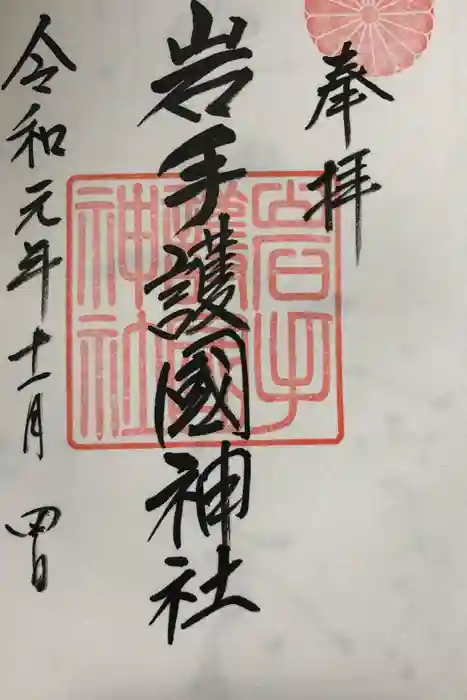 奉拝
岩手護國神社
岩手護國神社
令和元年十一月四日